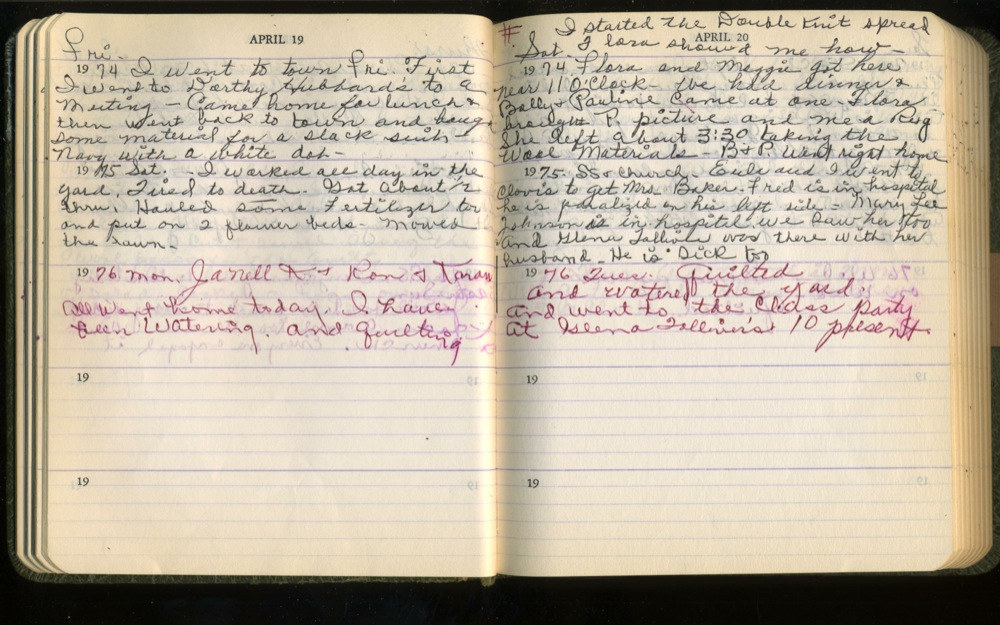 APRIL 19
Fri.
1974 I went to town Fri. First
I went to Dorthy Hubbards to a
Meeting - Came home for lunch &
then went back to town and bough
some material for a slack suit -
Navy with a white dot -
1975 Sat. - I worked all day in the
yard, Tired to death. Got about 1/2
thru. Hauled some Fertilizer too
and put on 2 flower beds - Mowed
the lawn.
1976 Mon. Janell & Ron &
all went home today. I have
been Watering and Quilting
19
19
# I started the Double Knit spread
APRIL 20
Sat. Flora showed me how -
1974 Flora and Maggie got here
near 11 O'Clock - We had dinner &
Bolly & Pauline Came at one - Flora
brought P. picture and me a Rug
She left about 3:30 taking the
Wool Materials - B & P. Went right home
1975. SS & Church. Eula and I went to
Clovis to get Mrs. Baker. Fred is in hospital
he is paralized on his left side - Mary Lee
Johnson is in hospital we saw her too
and Glena was there with her
husband. He is Sick too
1976 Tues. Quilted
and watered the yard.
and went to the Class party
at 10 present.
19
19